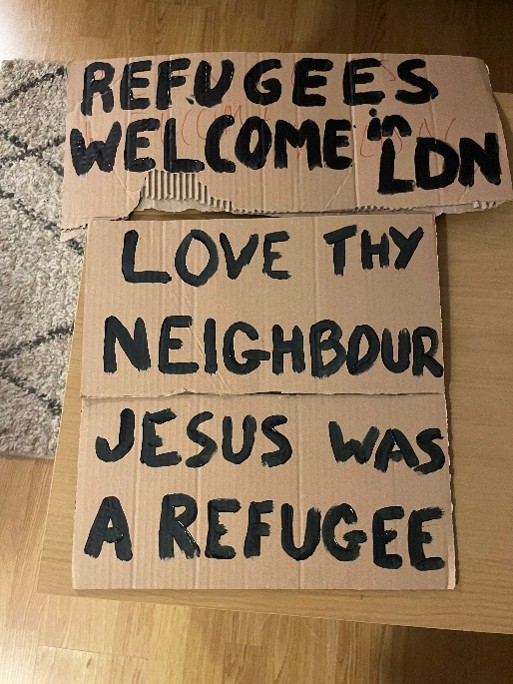 REFUGEES
WELCOME in LDN
LOVE THY
NEIGHBOUR
JESUS WAS
A REFUGEE